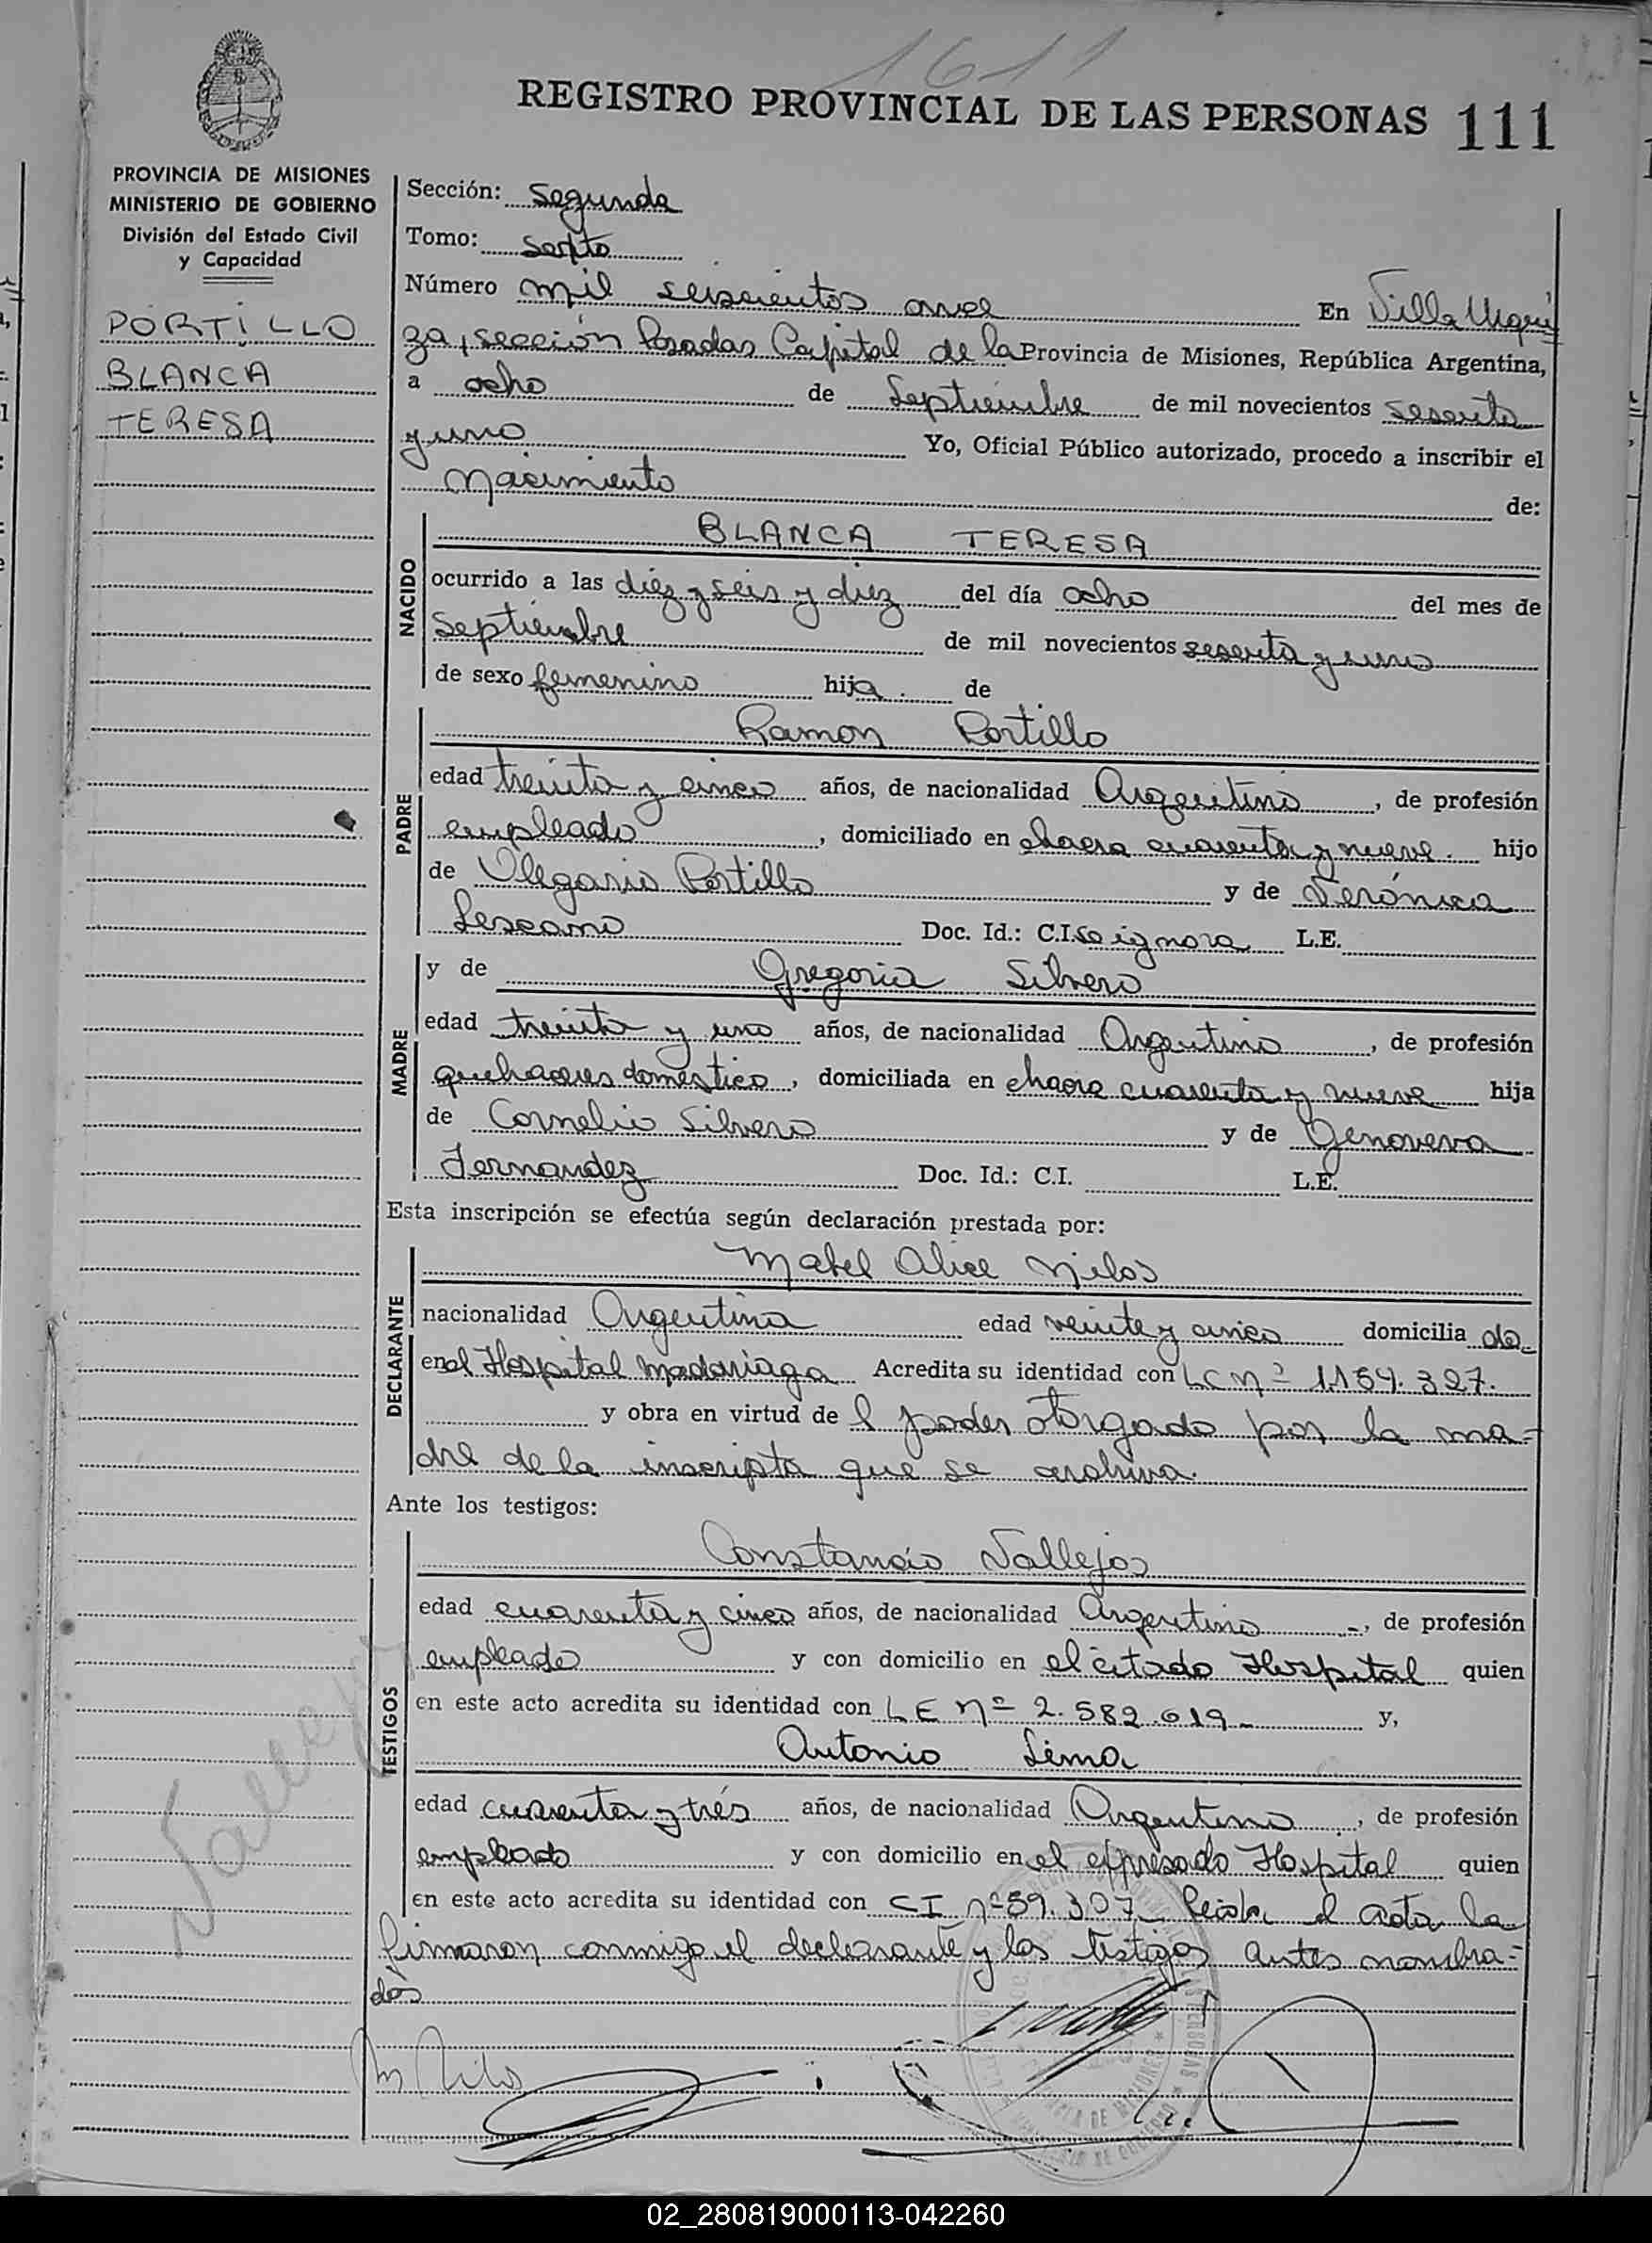 1611
REGISTRO PROVINCIAL DE LAS PERSONAS 111
PROVINCIA DE MISIONES
MINISTERIO DE GOBIERNO
División del Estado Civil
y Capacidad
PORTILLO
BLANCA
TERESA
Sección: Segunda
Tomo: sexto
Número mil seiscientos once En Villa Urqui
za, sección Posadas Capital de la Provincia de Misiones, República Argentina,
a ocho de Septiembre de mil novecientos sesenta
y uno Yo, Oficial Público autorizado, procedo a inscribir el
nacimiento de:
NACIDO
BLANCA TERESA
ocurrido a las diez y seis y diez del día ocho del mes de
Septiembre de mil novecientos sesenta y uno
de sexo femenino hija de
PADRE
Ramon Portillo
edad treinta y cinco años, de nacionalidad Argentino, de profesión
empleado, domiciliado en chacra cuarenta y nueve. hijo
de Olegario Portillo y de Verónica
Lescano Doc. Id.: C.I. se ignora L.E.
MADRE
y de Gregoria Silvero
edad treinta y uno años, de nacionalidad Argentina, de profesión
quehaceres doméstico, domiciliada en chacra cuarenta y nueve hija
de Cornelio Silvero y de Genoveva
Fernandez Doc. Id.: C.I. L.E.
Esta inscripción se efectúa según declaración prestada por:
DECLARANTE
Mabel Alice Milos
nacionalidad Argentina edad veinte y cinco domicilia da
en el Hospital Madariaga Acredita su identidad con LC nº 1.159.327.
y obra en virtud de l poder otorgado por la ma=
dre de la inscripta que se archiva.
Ante los testigos:
TESTIGOS
Constancio Vallejos
edad cuarenta y cinco años, de nacionalidad Argentino, de profesión
empleado y con domicilio en el citado Hospital quien
en este acto acredita su identidad con LE nº 2.582.019 y,
Antonio Lima
edad cuarenta y trés años, de nacionalidad Argentino, de profesión
empleado y con domicilio en el expresado Hospital quien
en este acto acredita su identidad con CI nº 59.307 Leida el acta la
firmaron conmigo el declarante y los testigos antes nombra=
dos
M Milos
02_280819000113-042260